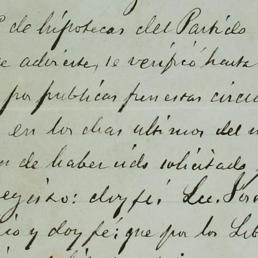 de hipotecas del Partido
se advierte, se verificó hasta
por publicas fuera estas circu
en los dias ultimos del m
de haber sido solicitado
registro: doy fé
io y doy fe: que por los Lib